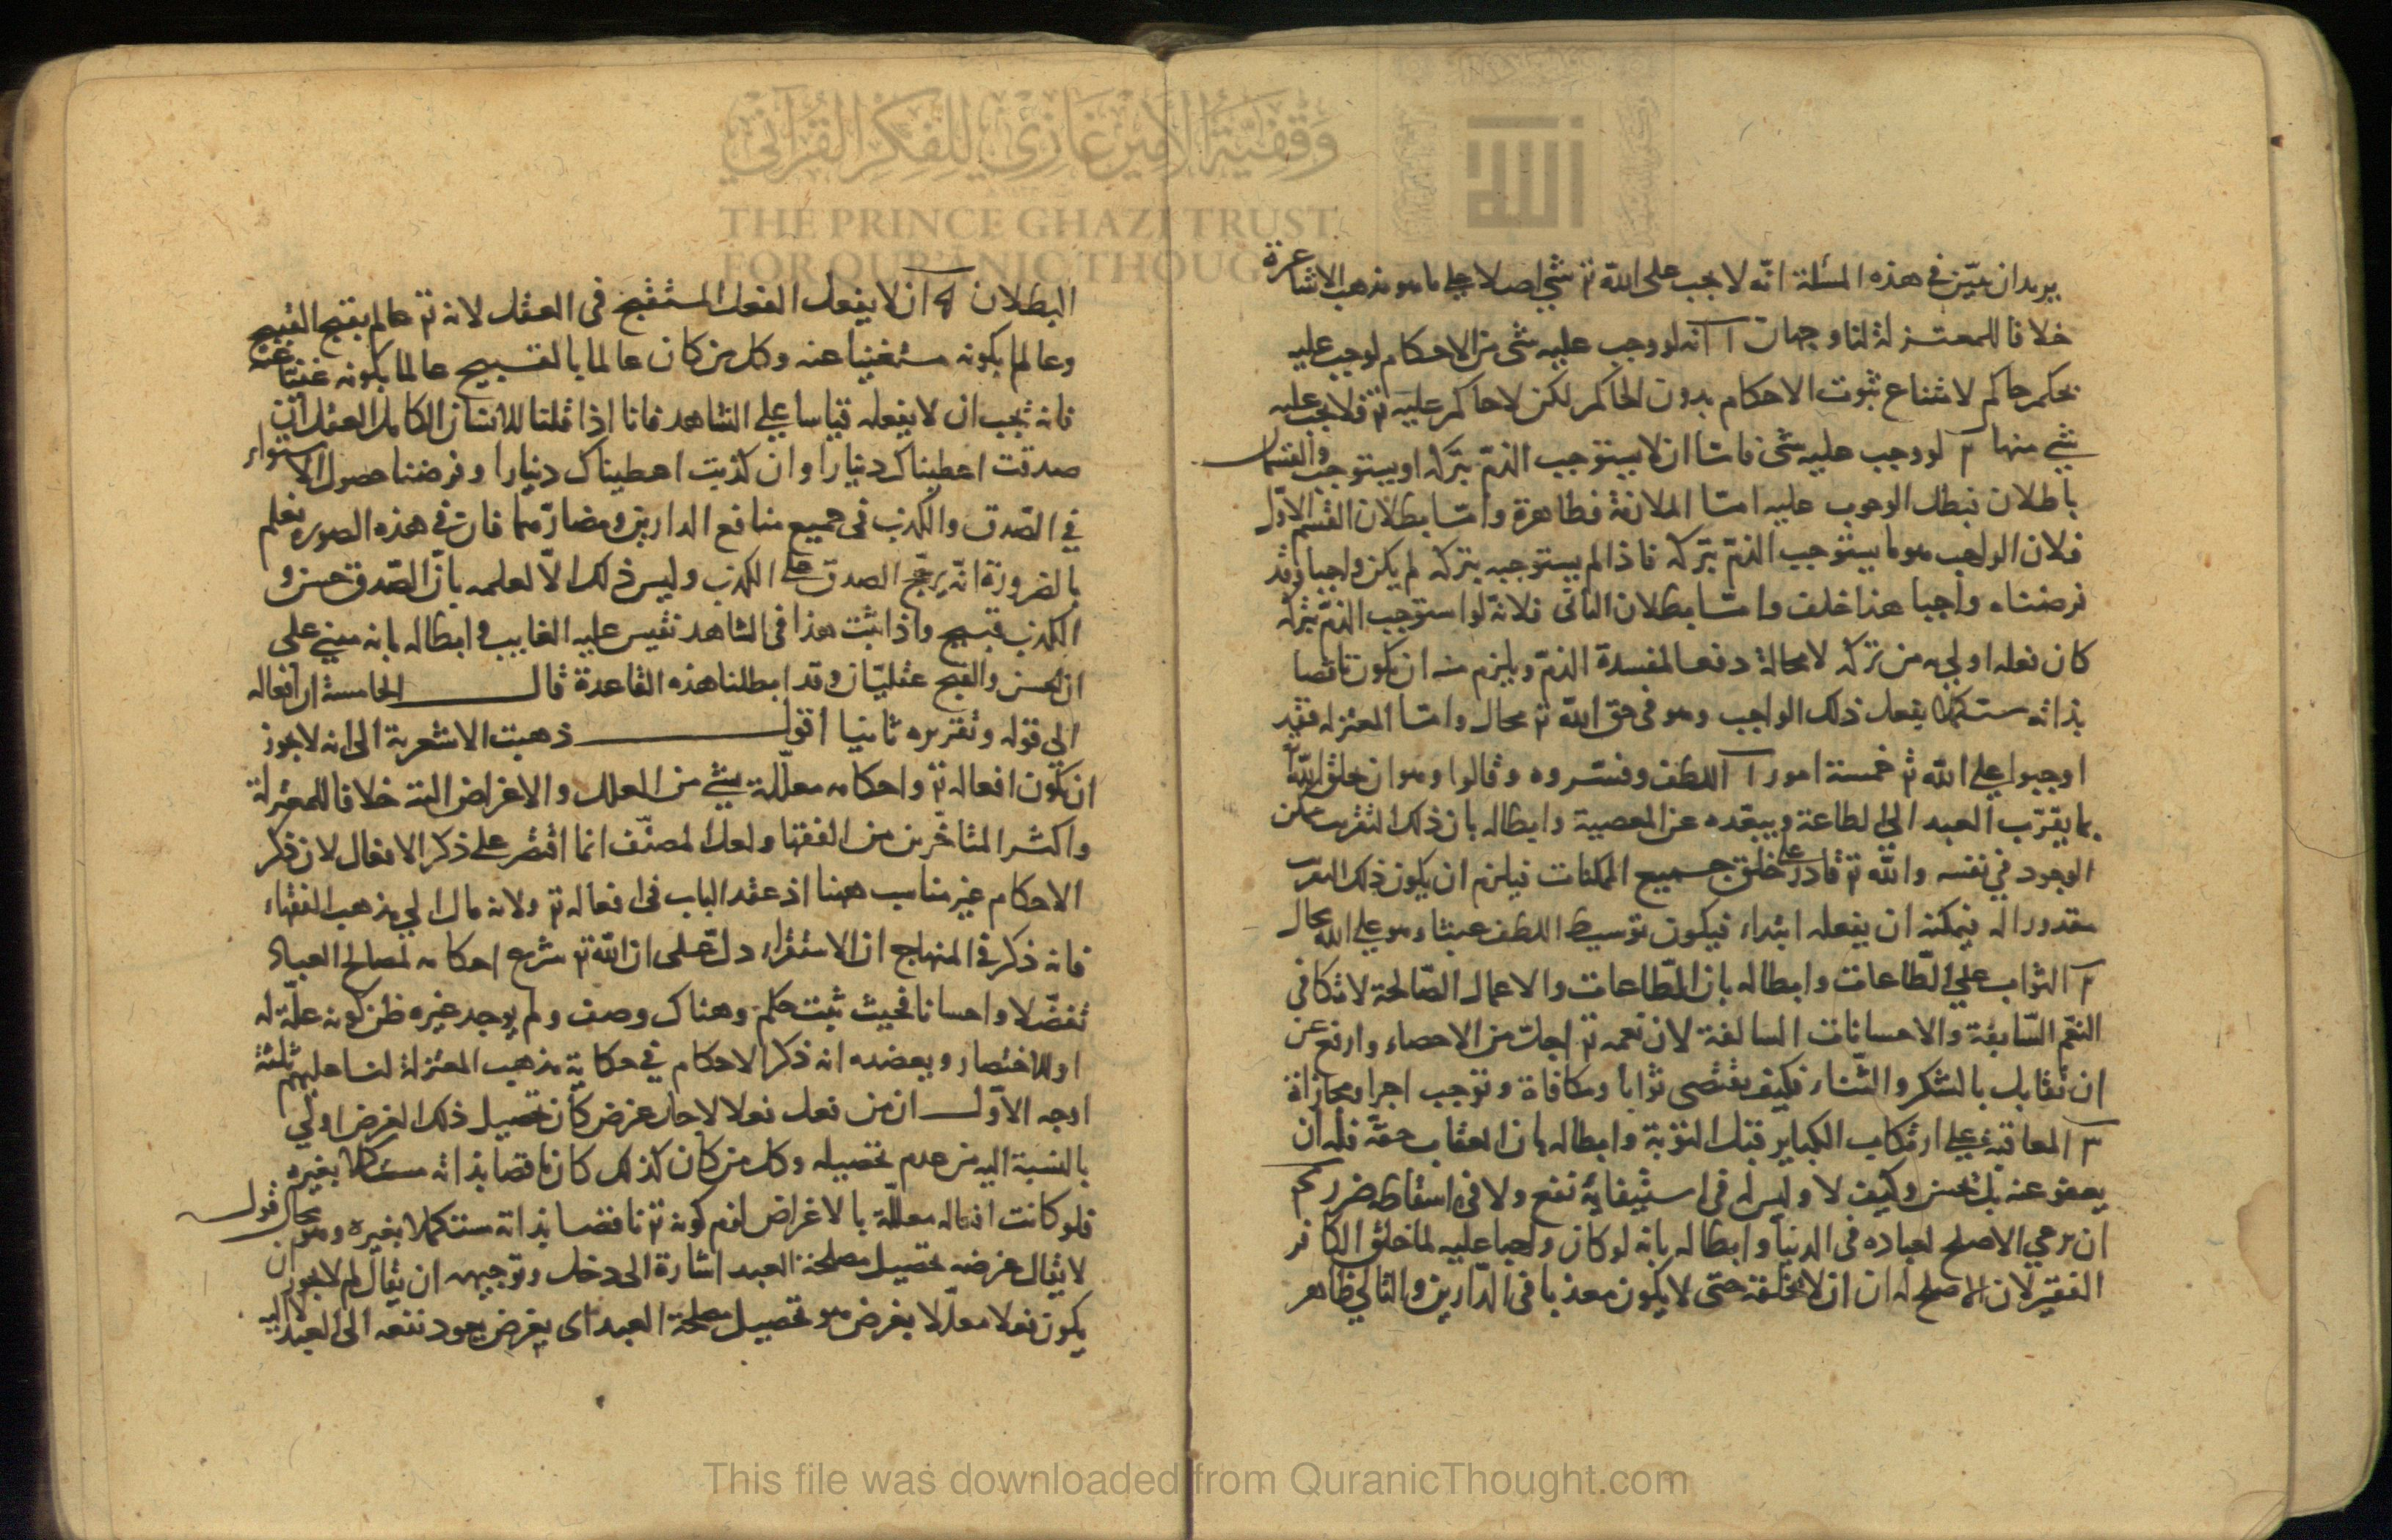 يريد ان يبيّن في هذه المسئلة انّه لا يجب على الله تع شئ اصلا على ما هو مذهب الاشاعرة
خلافا للمعتزلة لنا وجهان آ انه لو وجب عليه شئ من الاحكام لوجب عليه
بحكم حاكم لامتناع ثبوت الاحكام بدون الحاكم لكن لا حاكم عليه تع فلا يجب عليه
شئ منها ٢ لو وجب عليه شئ فامّا ان لا يستوجب الذمّ بتركه او يستوجب والقسمان
باطلان فبطل الوجوب عليه امّا الملازمة فظاهرة وامّا بطلان القسم الاوّل
فلان الواجب هو ما يستوجب الذمّ بتركه فاذا لم يستوجبه بتركه لم يكن واجبا وقد
فرضناه واجبا هذا خلف وامّا بطلان الثانى فلانّه لو استوجب الذمّ بتركه
كان فعله اولى من تركه لا محالة دفعا لمفسدة الذمّ ويلزم منه ان يكون ناقصا
بذاته مستكملا بفعل ذلك الواجب وهو فى حق الله تع محال وامّا المعتزله فقد
اوجبوا على الله تع خمسة امور آ اللطف وفسّروه وقالوا وهو ان يخلق الله
ما يقرّب العبد الى الطاعة ويبعّده عن المعصية وابطاله بان ذلك التقريب ممكن
الوجود في نفسه والله تع قادر على خلق جميع الممكنات فيلزم ان يكون ذلك التقريب
مقدورا له فيمكنه ان يفعله ابتداء فيكون توسيط اللطف عبثا وهو على الله محال
٢ الثواب على الطّاعات وابطاله بان الطّاعات والاعمال الصّالحة لا تكافى
النعم السّابقة والاحسانات السالفة لان نعمه تع اجلّ من الاحصاء وارفع عن
ان تقابل بالشكر والثّناء فكيف يقتضى ثوابا ومكافاة وتوجب اجرا ومجازاة
٣ المعاقبة على ارتكاب الكباير قبل التوبة وابطاله بان العقاب حقّه فله ان
يعفو عنه بل يحسن وكيف لا وليس له فى استيفائه نفع ولا فى اسقاطه ضرر ٤
ان يرعي الاصلح لعباده فى الدنيا وابطاله بانه لو كان واجبا عليه لما خلق الكافر
الفقير لان الاصلح له ان لا يخلقه حتى لا يكون معذبا فى الدّارين والتالي ظاهر
البطلان ٥ ان لا يفعل الفعل المستقبح فى العقل لانه تع عالم بقبح القبيح
وعالم بكونه مستغنيا عنه وكل من كان عالما بالقبيح عالما بكونه غنيّا عنه
فانه يجب ان لا يفعله قياسا على الشاهد فانا اذا قلنا للانسان الكامل العقل ان
صدقت اعطيناك دينارا وان كذبت اعطيناك دينارا وفرضنا حصول الاستواء
في الصّدق والكذب فى جميع منافع الدارين ومضارّهما فان في هذه الصورة نعلم
بالضرورة انّه يرجّح الصدق على الكذب وليس ذلك الّا لعلمه بانّ الصّدق حسن و
الكذب قبيح واذا ثبت هذا فى الشاهد نقيس عليه الغايب وابطاله بانه مبني على
ان الحسن والقبح عقليّان وقد ابطلنا هذه القاعدة قال الخامسة ان افعاله
الي قوله وتقريره ثانيا اقول ذهبت الاشعرية الى انه لا يجوز
ان يكون افعاله تع واحكامه معلّلة بشئ من العلل والاغراض البتة خلافا للمعتزلة
واكثر المتاخّرين من الفقها ولعل المصنّف انما اقتصر على ذكر الافعال لان ذكر
الاحكام غير مناسب ههنا اذ عقد الباب فى افعاله تع ولانه مال الي مذهب الفقهاء
فانه ذكر فى المنهاج ان الاستقراء دلّ على ان الله تع شرع احكامه لمصالح العباد
تفضّلا واحسانا فحيث ثبت حكم وهناك وصف ولم يوجد غيره ظن كونه علّة له
او للاختصار ويعضده انه ذكر الاحكام في حكاية مذهب المعتزلة لنا عليهم ثلثة
اوجه الاوّل ان من فعل فعلا لاجل غرض كان تحصيل ذلك الغرض اولى
بالنسبة اليه من عدم تحصيله وكل من كان كذلك كان ناقصا بذاته مستكملا بغيره
فلو كانت افعاله معلّلة بالاغراض لزم كونه تع ناقصا بذاته مستكملا بغيره وهو محال قوله
لا يقال غرضه تحصيل مصلحة العبد اشارة الى دخل وتوجيهه ان يقال لم لا يجوز ان
يكون فعلا معلّلا بغرض هو تحصيل مصلحة العبد اى بغرض يعود نفعه الى العبد لا اليه
وقفية الأمير غازي للفكر القرآني
THE PRINCE GHAZI TRUST
FOR QUR'ANIC THOUGHT
This file was downloaded from QuranicThought.com